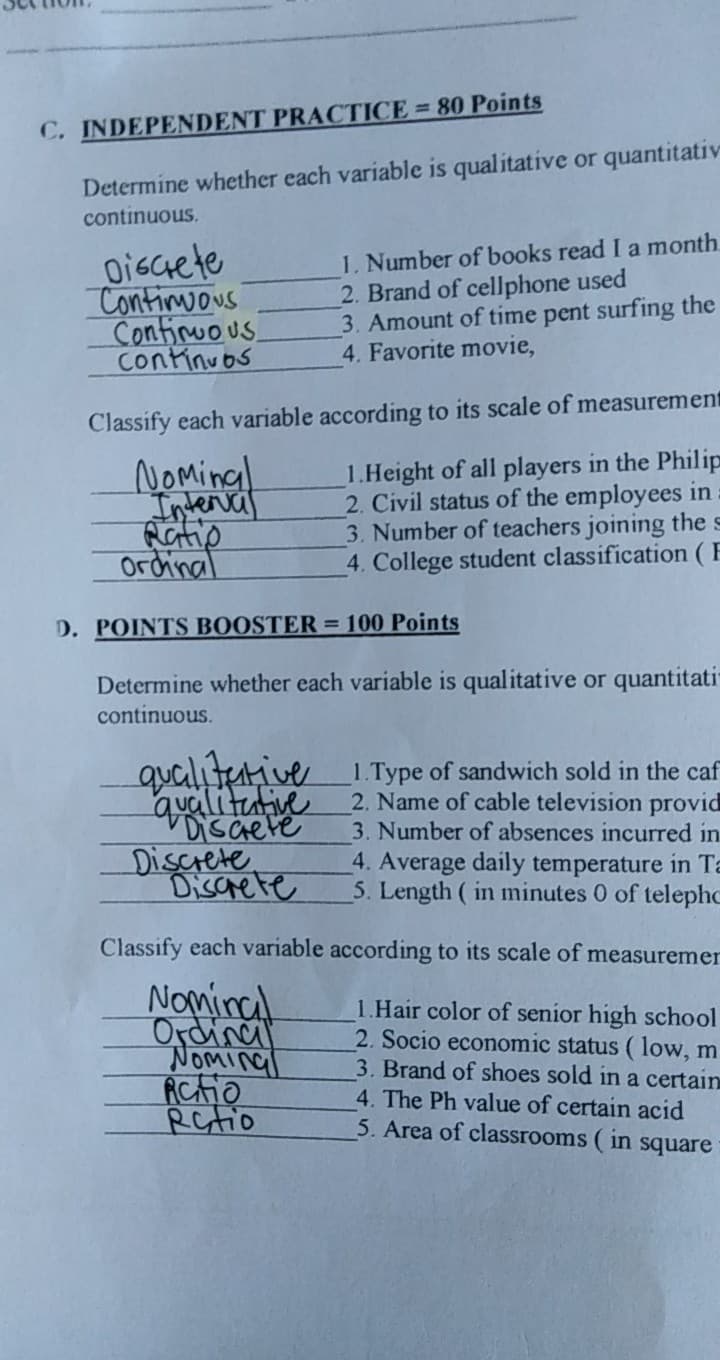 C. INDEPENDENT PRACTICE = 80 Points
Determine whether each variable is qualitative or quantitativ
continuous.
Discrete 1. Number of books read I a month.
Continuous 2. Brand of cellphone used
Continuous 3. Amount of time pent surfing the
continuos 4. Favorite movie,
Classify each variable according to its scale of measurement
Nominal 1.Height of all players in the Philip
Interval 2. Civil status of the employees in
Ratio 3. Number of teachers joining the s
ordinal 4. College student classification ( F
D. POINTS BOOSTER = 100 Points
Determine whether each variable is qualitative or quantitati
continuous.
qualitative 1.Type of sandwich sold in the caf
qualitative 2. Name of cable television provid
Discrete 3. Number of absences incurred in
Discrete 4. Average daily temperature in Ta
Discrete 5. Length ( in minutes 0 of telepho
Classify each variable according to its scale of measuremen
Nominal 1.Hair color of senior high school
Ordinal 2. Socio economic status ( low, m
Nominal 3. Brand of shoes sold in a certain
Ratio 4. The Ph value of certain acid
Ratio 5. Area of classrooms ( in square